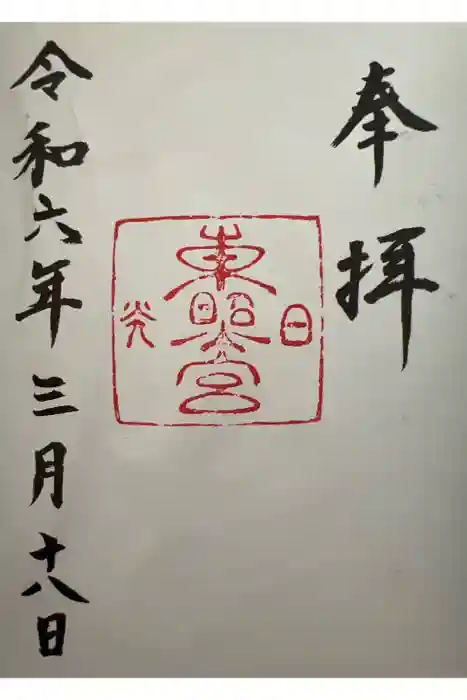 奉拝
日光
東照宮
令和六年三月十八日